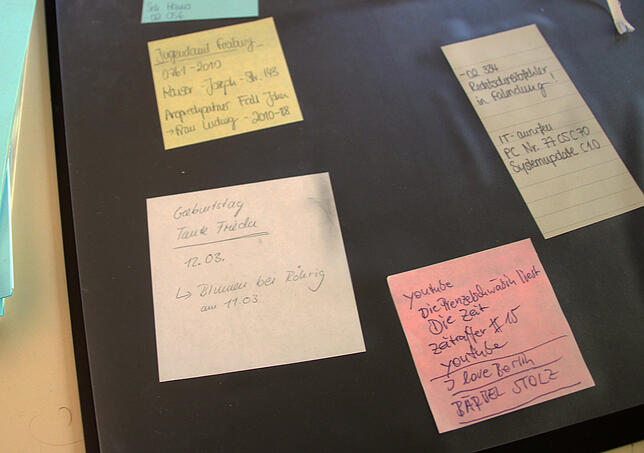 02 056
Jugendamt Freiburg
0761-2010
Kaiser-Joseph-Str. 143
Ansprechpartner Fall John
→ Frau Ludwig - 2010-88
- 02 334
Rechtschreibfehler
in Fahndung!
IT-anrufen
PC Nr. 77 05C70
Systemupdate C1.0
Geburtstag
Tante Frieda
12.03.
↳ Blumen bei Röhrig
am 11.03.
youtube
Die Prenzelschwäbin liest
Die Zeit
Zeitraffer # 15
youtube
I love Berlin
BÄRBEL STOLZ